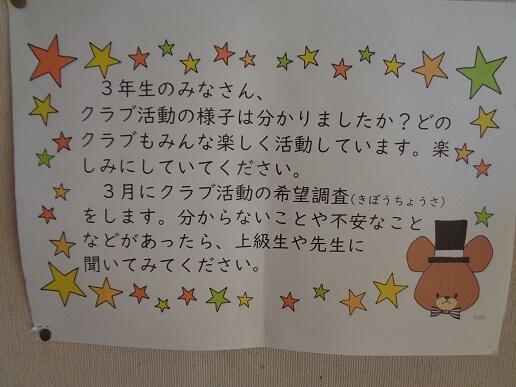 ３年生のみなさん、
クラブ活動の様子は分かりましたか？どの
クラブもみんな楽しく活動しています。楽
しみにしていてください。
３月にクラブ活動の希望調査(きぼうちょうさ)
をします。分からないことや不安なこと
などがあったら、上級生や先生に
聞いてみてください。